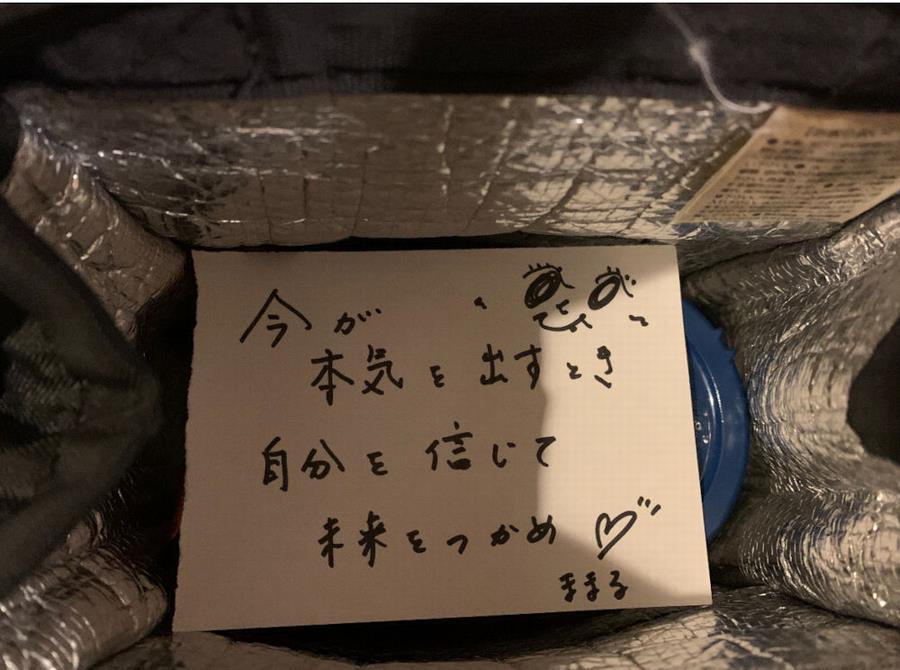 今が
本気を出すとき
自分を信じて
未来をつかめ♡
ままる